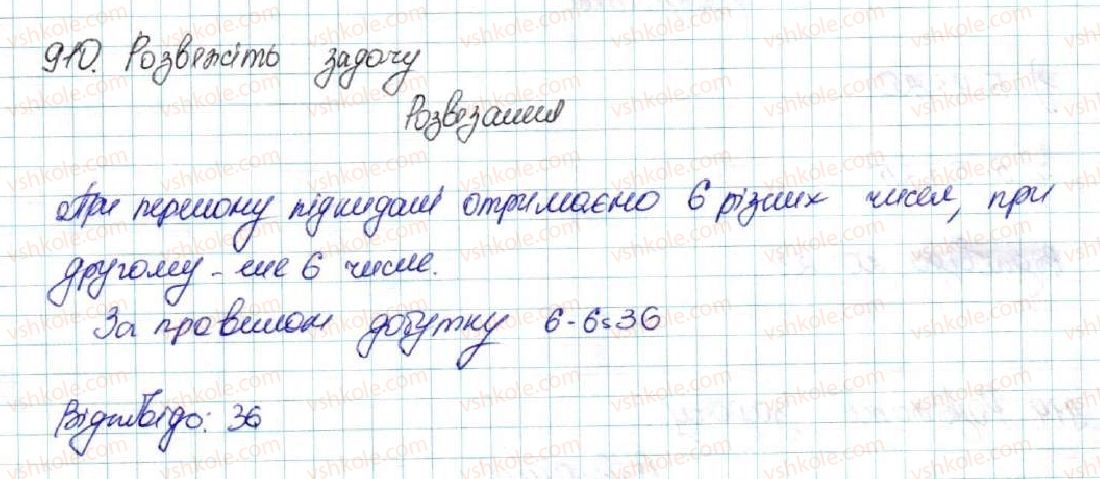 910. Розвежіть задачу
Розвезання
При першому підкидані отримаємо 6 різних чисел, при
другому - ще 6 чисел.
За правилом добутку 6-6=36
Відповідь: 36